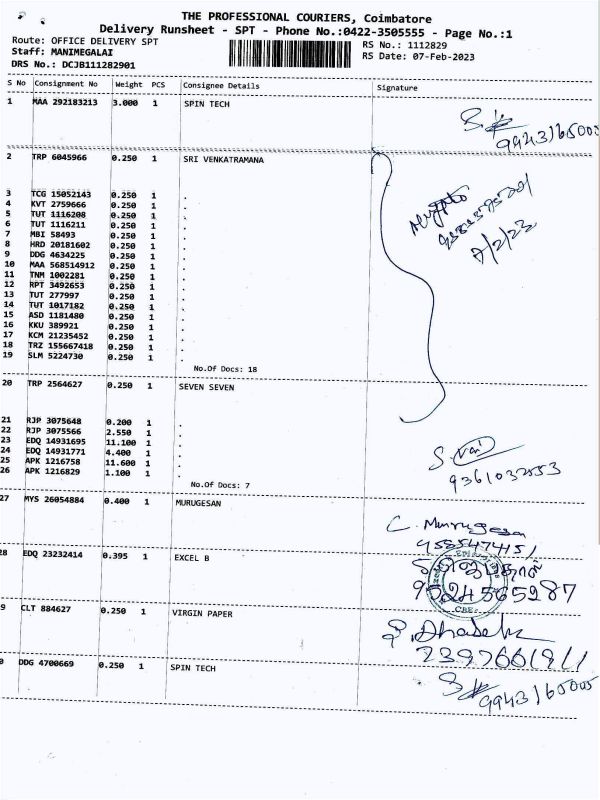 THE PROFESSIONAL COURIERS, Coimbatore
Delivery Runsheet - SPT - Phone No.:0422-3505555 - Page No.:1
Route: OFFICE DELIVERY SPT
RS No.: 1112829
Staff: MANIMEGALAI
RS Date: 07-Feb-2023
DRS No.: DCJB111282901
S No Consignment No Weight PCS Consignee Details Signature
1 MAA 292183213 3.000 1 SPIN TECH
9943165005
2 TRP 6045966 0.250 1 SRI VENKATRAMANA
3 TCG 15052143 0.250 1 .
4 KVT 2759666 0.250 1 .
5 TUT 1116208 0.250 1 .
6 TUT 1116211 0.250 1 .
7 MBI 58493 0.250 1 .
8 HRD 20181602 0.250 1 .
9 DDG 4634225 0.250 1 .
10 MAA 568514912 0.250 1 .
11 TNM 1002281 0.250 1 .
12 RPT 3492653 0.250 1 .
13 TUT 277997 0.250 1 .
14 TUT 1017182 0.250 1 .
15 ASD 1181480 0.250 1 .
16 KKU 389921 0.250 1 .
17 KCM 21235452 0.250 1 .
18 TRZ 155667418 0.250 1 .
19 SLM 5224730 0.250 1 .
7/2/23
No.Of Docs: 18
20 TRP 2564627 0.250 1 SEVEN SEVEN
21 RJP 3075648 0.200 1 .
22 RJP 3075566 2.550 1 .
23 EDQ 14931695 11.100 1 .
24 EDQ 14931771 4.400 1 .
25 APK 1216758 11.600 1 .
26 APK 1216829 1.100 1 .
No.Of Docs: 7
27 MYS 26054884 0.400 1 MURUGESAN
C. Murugesan
28 EDQ 23232414 0.395 1 EXCEL B
9524565287
9 CLT 884627 0.250 1 VIRGIN PAPER
0 DDG 4700669 0.250 1 SPIN TECH
9943165005